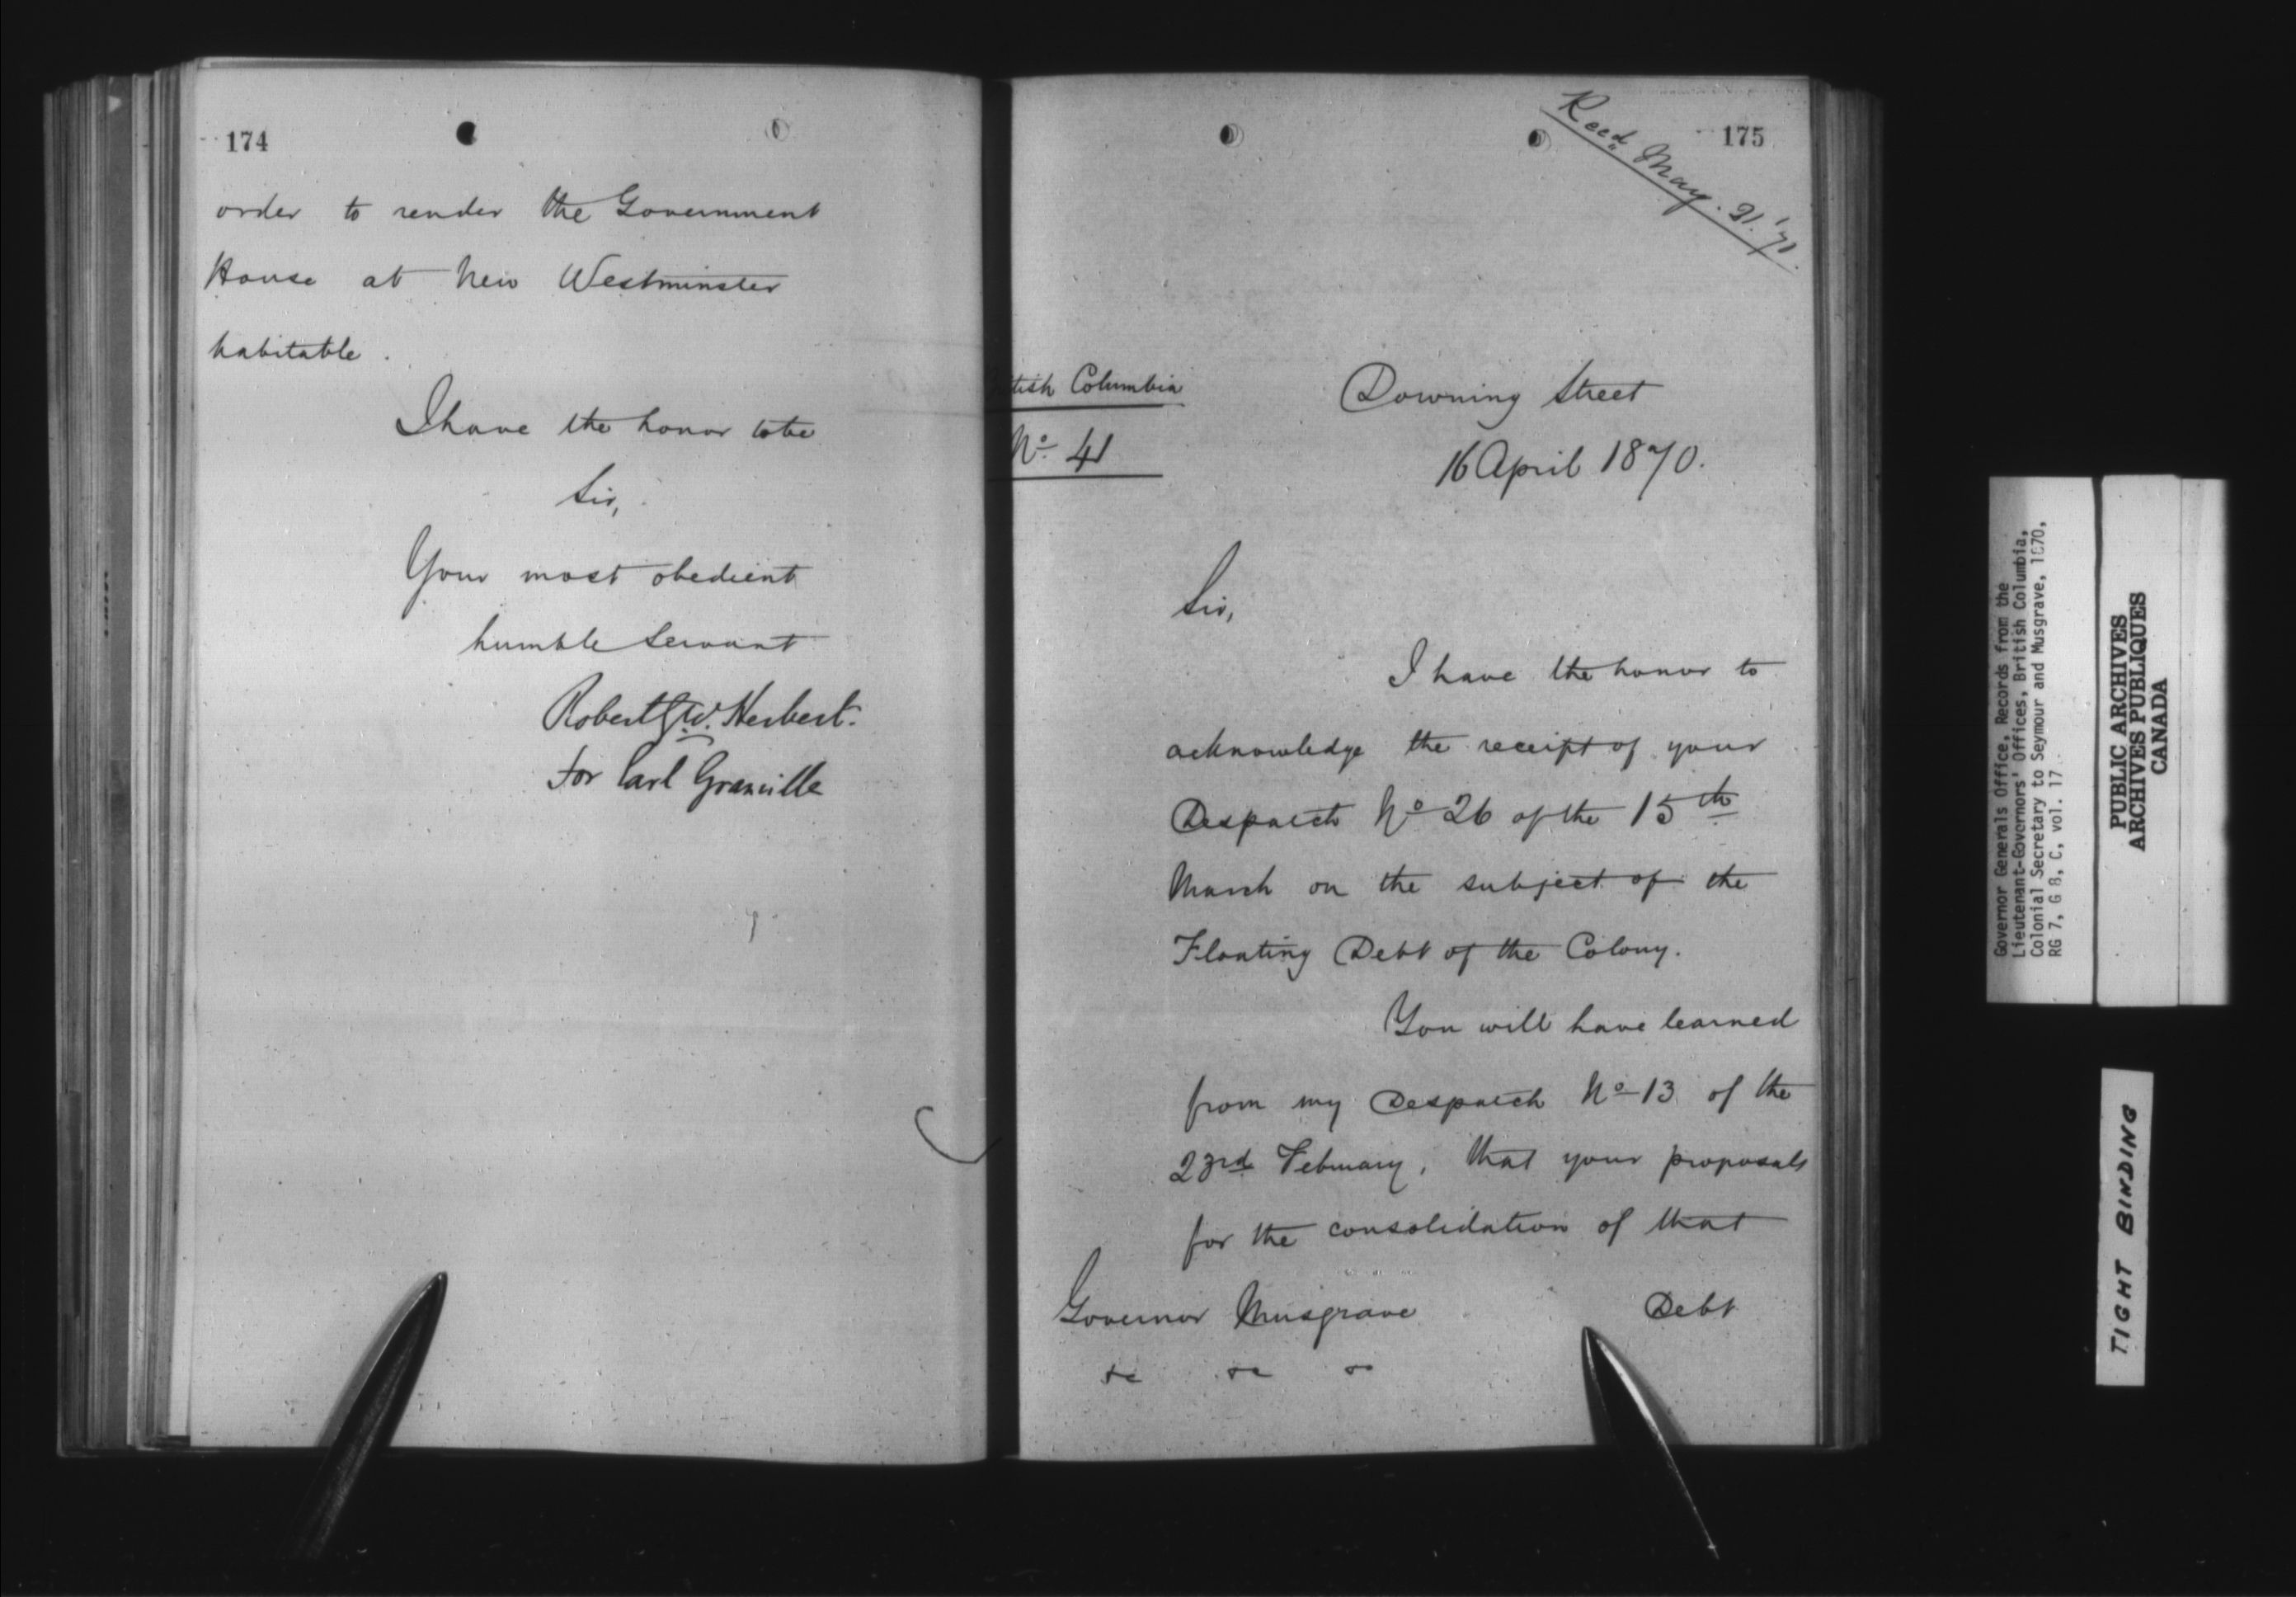 174
order to render the Government
House at New Westminster
habitable.
I have the honor to be
Sir,
Your most obedient
humble servant
Robert G.W. Herbert.
For Earl Granville
175
Recd. May. 21. '70
tish Columbia
No. 41
Downing Street
16 April 1870.
Sir,
I have the honor to
acknowledge the receipt of your
Despatch No. 26 of the 15th
March on the subject of the
Floating Debt of the Colony.
You will have learned
from my Despatch No. 13 of the
23rd February, that your proposals
for the consolidation of that
Debt
Governor Musgrave
&c &c &c
Governor Generals Office, Records from the
Lieutenant-Governors' Offices, British Columbia,
Colonial Secretary to Seymour and Musgrave, 1870,
RG 7, G 8, C, vol. 17
PUBLIC ARCHIVES
ARCHIVES PUBLIQUES
CANADA
TIGHT BINDING